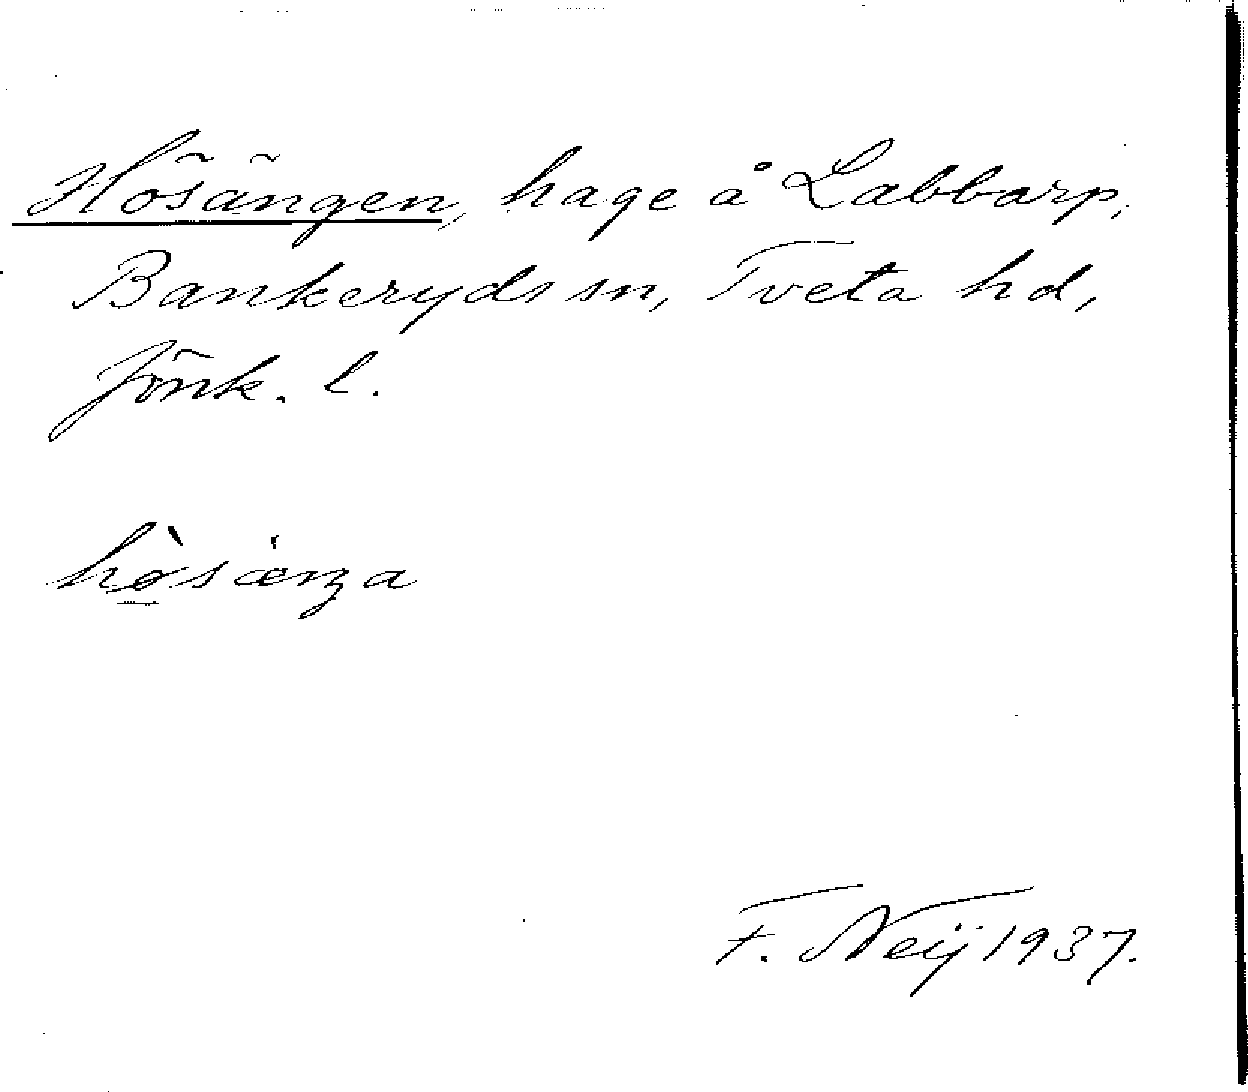 Hösängen, hage å Labbarp,
Bankeryds sn, Tveta hd,
Jönk. l.
hø̀sæŋa
F. Neij 1937.